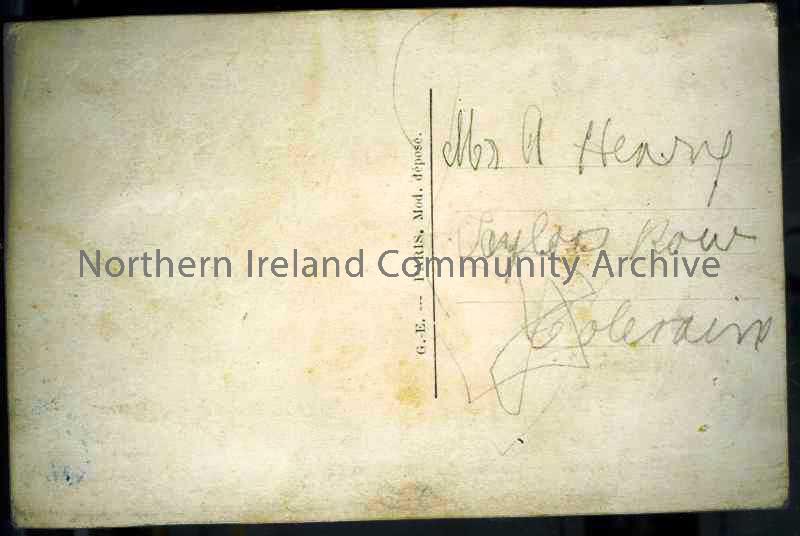 G.-E. --- PARIS. Mod. déposé.
Mr A Henry
Taylors Row
Coleraine
Northern Ireland Community Archive